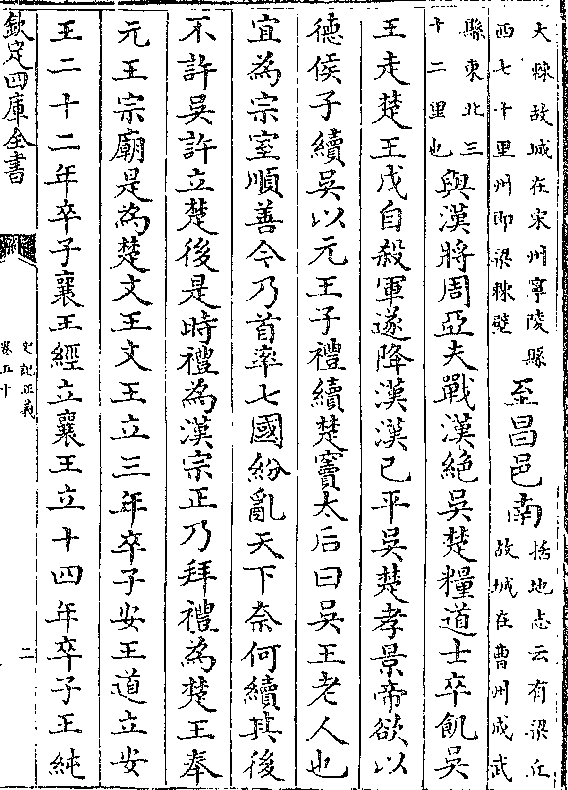 大棘故城在宋州寧陵縣
西七十里州即梁棘壁
至昌邑南
括地志云有梁丘
故城在曹州成武
縣東北三
十二里也
與漢將周亞夫戰漢絶吳楚糧道士卒飢吳
王走楚王戊自殺軍遂降漢漢已平吳楚孝景帝欲以
德侯子續吳以元王子禮續楚竇太后曰吳王老人也
宜為宗室順善今乃首率七國紛亂天下奈何續其後
不許吳許立楚後是時禮為漢宗正乃拜禮為楚王奉
元王宗廟是為楚文王文王立三年卒子安王道立安
王二十二年卒子襄王經立襄王立十四年卒子王純
欽定四庫全書
史記正義
卷五十
二